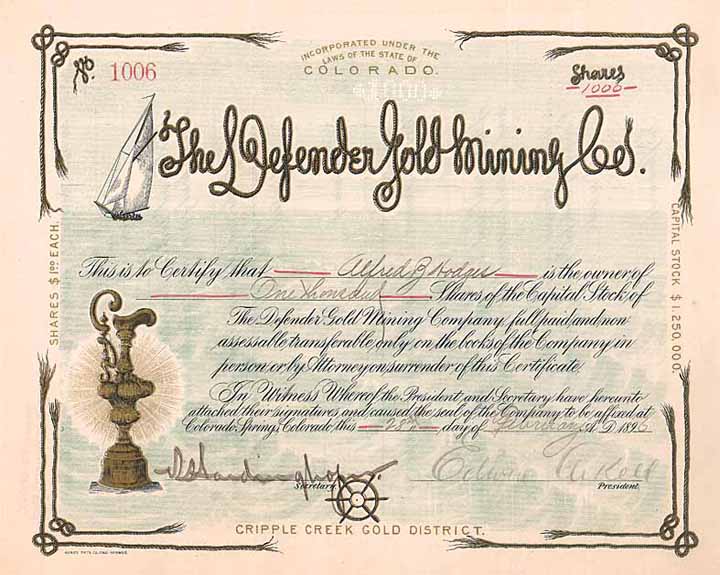 No. 1006
INCORPORATED UNDER THE
LAWS OF THE STATE OF
COLORADO.
Shares
1000
The Defender Gold Mining Co.
SHARES $1.00 EACH.
CAPITAL STOCK $1.250.000.
This is to Certify that Alfred B Hodges is the owner of
One Thousand Shares of the Capital Stock of
The Defender Gold Mining Company, full paid, and non
assessable transferable only on the books of the Company in
person or by Attorney on surrender of this Certificate.
In Witness Whereof, the President and Secretary have hereunto
attached their signatures and caused the seal of the Company to be affixed at
Colorado Springs, Colorado, this 28th day of February A.D. 1896
Secretary
President.
CRIPPLE CREEK GOLD DISTRICT.